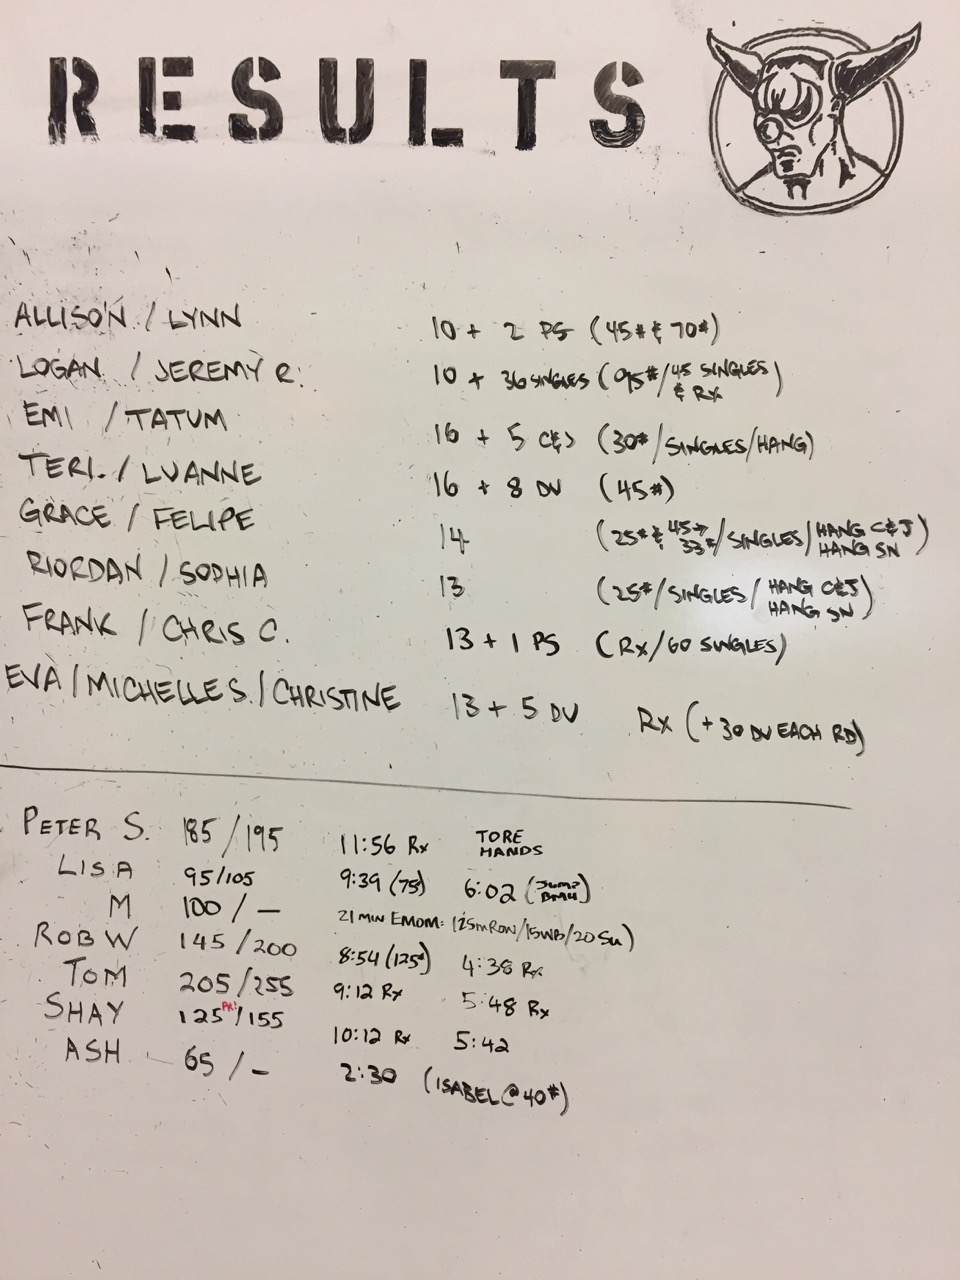 RESULTS
ALLISON / LYNN 10 + 2 PS (45# & 70#)
LOGAN / JEREMY R. 10 + 36 SINGLES (95#/45 SINGLES & RX)
EMI / TATUM 16 + 5 C&J (30#/SINGLES/HANG)
TERI / LUANNE 16 + 8 DU (45#)
GRACE / FELIPE 14 (25# & 45→33#/SINGLES/HANG C&J HANG SN)
RIORDAN / SOPHIA 13 (25#/SINGLES/HANG C&J HANG SN)
FRANK / CHRIS C. 13 + 1 PS (RX/60 SINGLES)
EVA/MICHELLE S./CHRISTINE 13 + 5 DU RX (+30 DU EACH RD)
PETER S. 185/195 11:56 Rx TORE HANDS
LISA 95/105 9:39 (75) 6:02 (JUMP BMU)
M 100/— 21 MIN EMOM: 125m ROW/15WB/20 SU)
ROB W 145/200 8:54 (125#) 4:38 Rx
TOM 205/255 9:12 Rx 5:48 Rx
SHAY 125 PR!/155 10:12 Rx 5:42
ASH 65/— 2:30 (ISABEL @ 40#)